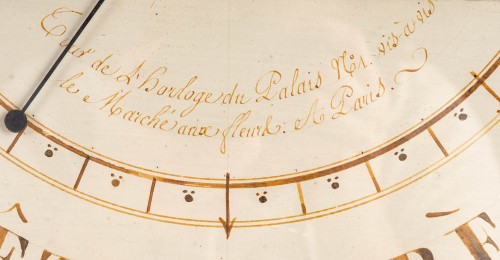 Tour de L'horloge du Palais N° 1. vis à vis
le Marché aux fleurs. A Paris.